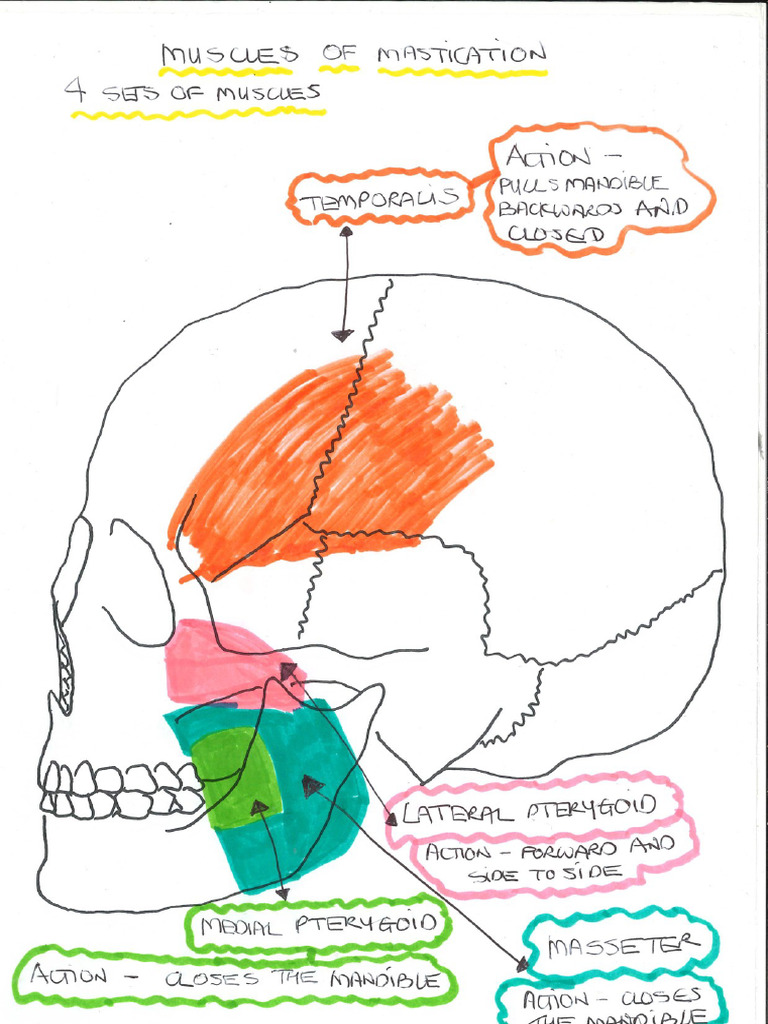 MUSCLES OF MASTICATION
4 SETS OF MUSCLES
TEMPORALIS
ACTION –
PULLS MANDIBLE
BACKWARDS AND
CLOSED
LATERAL PTERYGOID
ACTION – FORWARD AND
SIDE TO SIDE
MEDIAL PTERYGOID
ACTION – CLOSES THE MANDIBLE
MASSETER
ACTION – CLOSES
THE MANDIBLE